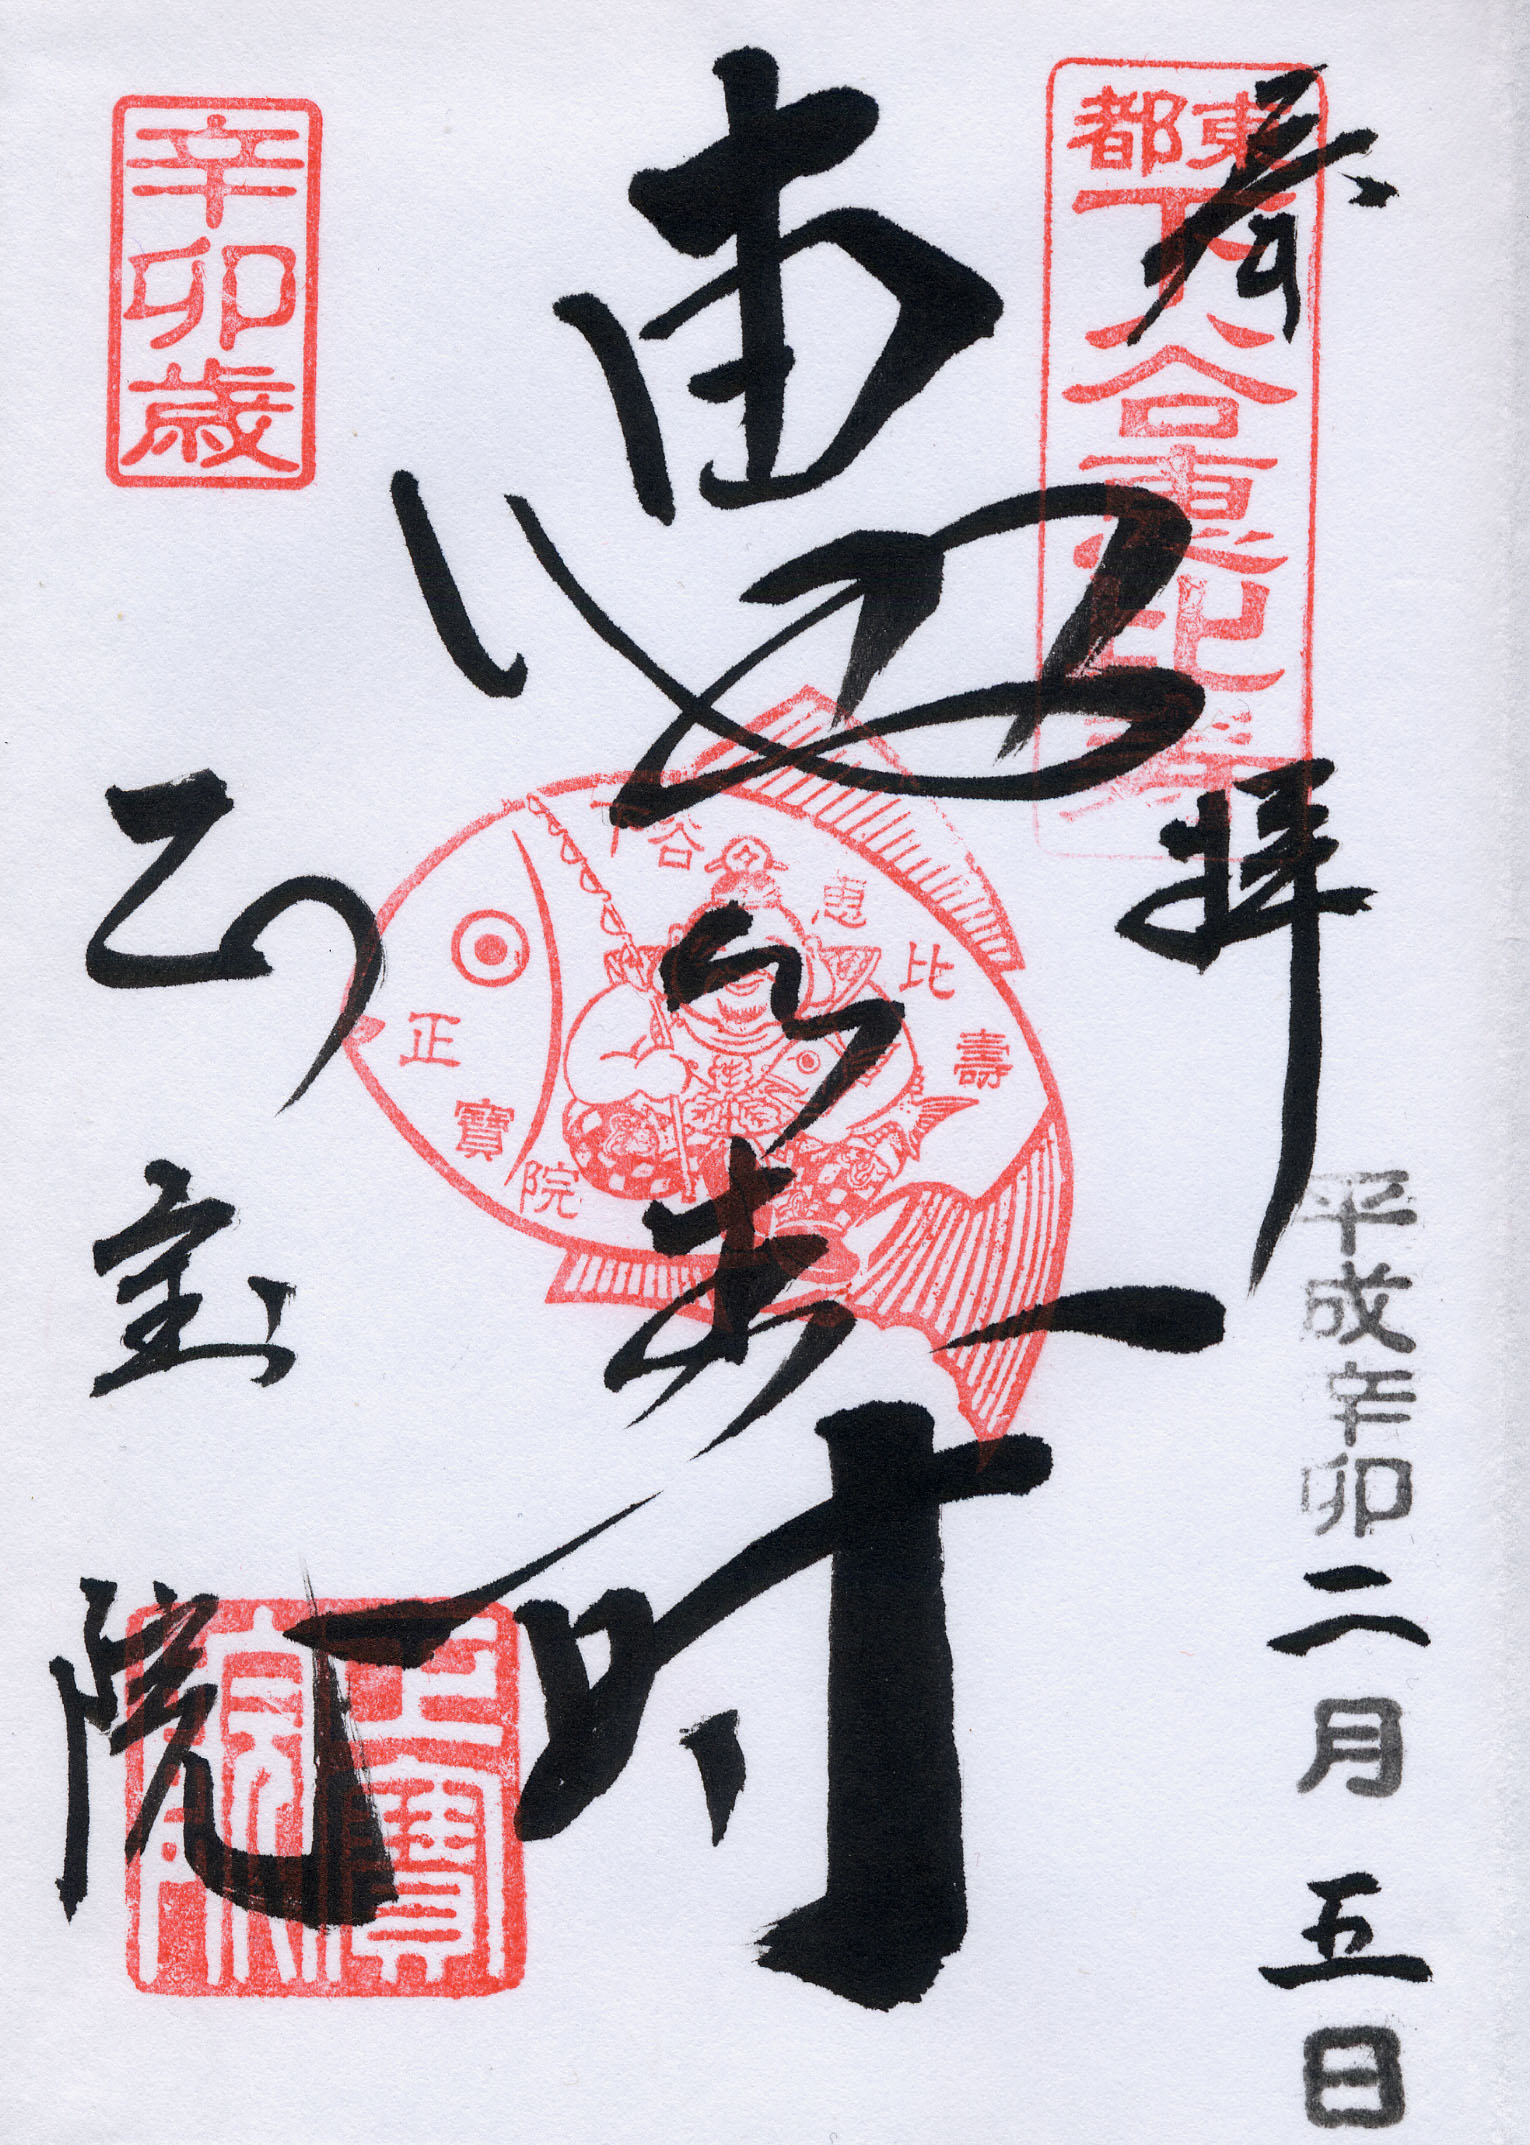 東都
下谷惠比壽
奉拝
平成辛卯二月五日
下谷恵比壽
正寶院
恵比寿
辛卯歳
正宝院
正寶院